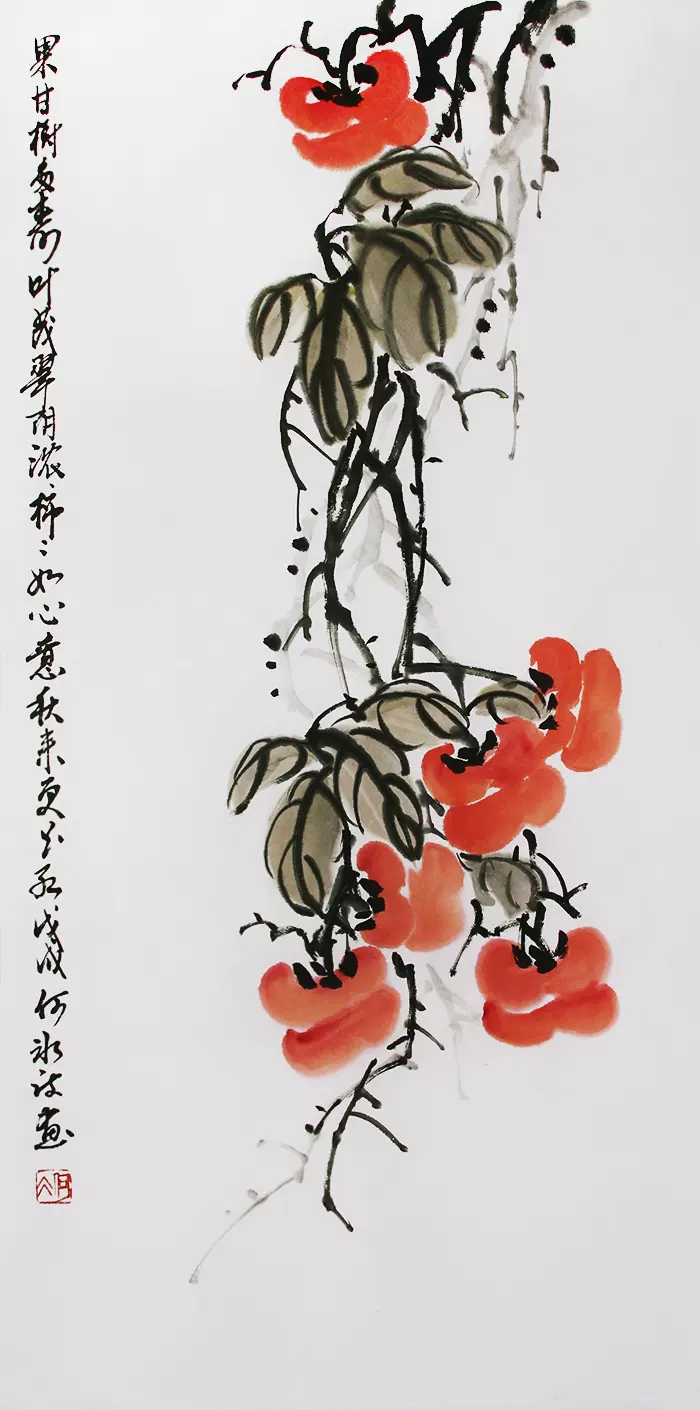 果甘树多寿叶茂翠阴浓柿柿如心意秋来更红戊戌何冰画